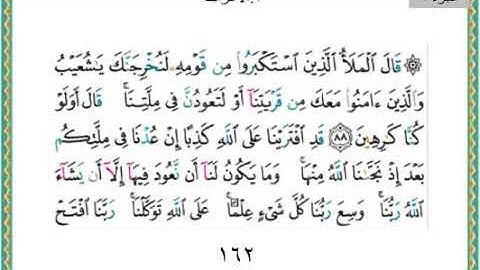 ۞ قَالَ ٱلْمَلَأُ ٱلَّذِينَ ٱسْتَكْبَرُوا۟ مِن قَوْمِهِۦ لَنُخْرِجَنَّكَ يَـٰشُعَيْبُ
وَٱلَّذِينَ ءَامَنُوا۟ مَعَكَ مِن قَرْيَتِنَآ أَوْ لَتَعُودُنَّ فِى مِلَّتِنَا ۚ قَالَ أَوَلَوْ
كُنَّا كَـٰرِهِينَ ٨٨ قَدِ ٱفْتَرَيْنَا عَلَى ٱللَّهِ كَذِبًا إِنْ عُدْنَا فِى مِلَّتِكُم
بَعْدَ إِذْ نَجَّىٰنَا ٱللَّهُ مِنْهَا ۚ وَمَا يَكُونُ لَنَآ أَن نَّعُودَ فِيهَآ إِلَّآ أَن يَشَآءَ
ٱللَّهُ رَبُّنَا ۚ وَسِعَ رَبُّنَا كُلَّ شَىْءٍ عِلْمًا ۚ عَلَى ٱللَّهِ تَوَكَّلْنَا ۚ رَبَّنَا ٱفْتَحْ
١٦٢